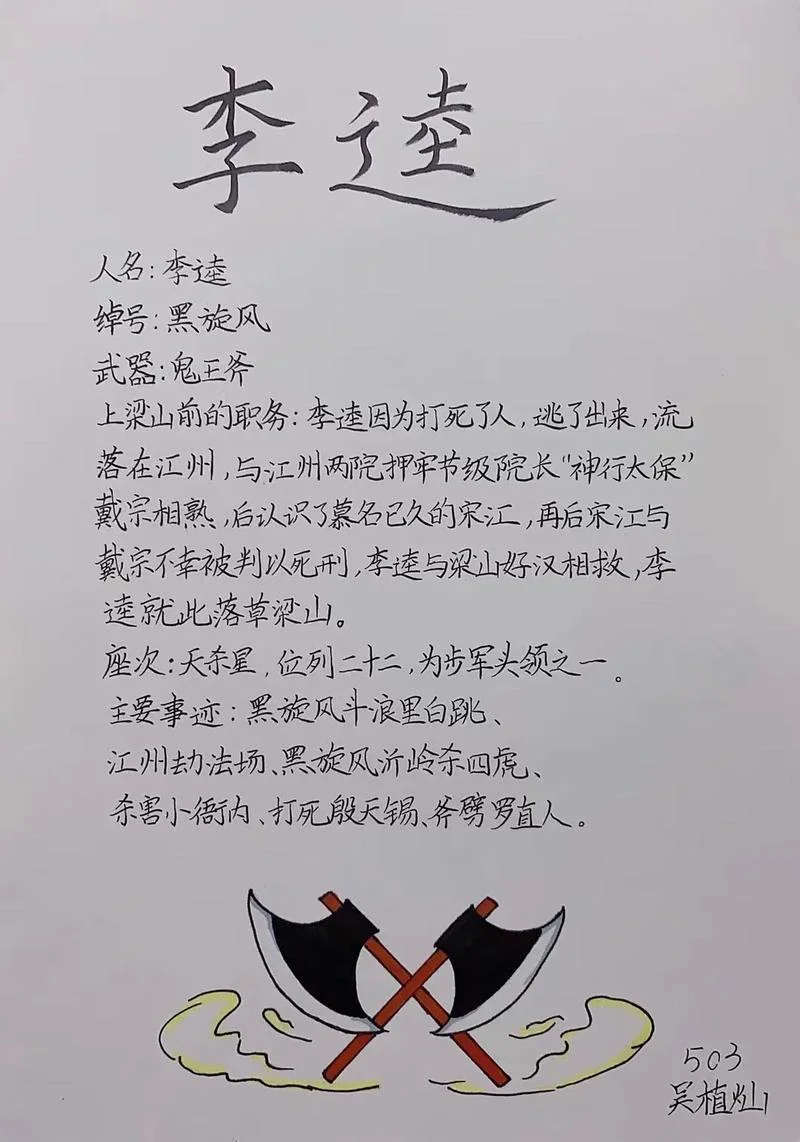 李逵
人名：李逵
绰号：黑旋风
武器：鬼王斧
上梁山前的职务：李逵因为打死了人，逃了出来，流
落在江州，与江州两院押牢节级院长“神行太保”
戴宗相熟，后认识了慕名已久的宋江，再后宋江与
戴宗不幸被判以死刑，李逵与梁山好汉相救，李
逵就此落草梁山。
座次：天杀星，位列二十二，为步军头领之一。
主要事迹：黑旋风斗浪里白跳、
江州劫法场、黑旋风沂岭杀四虎、
杀害小衙内、打死殷天锡、斧劈罗直人。
503
吴植灿